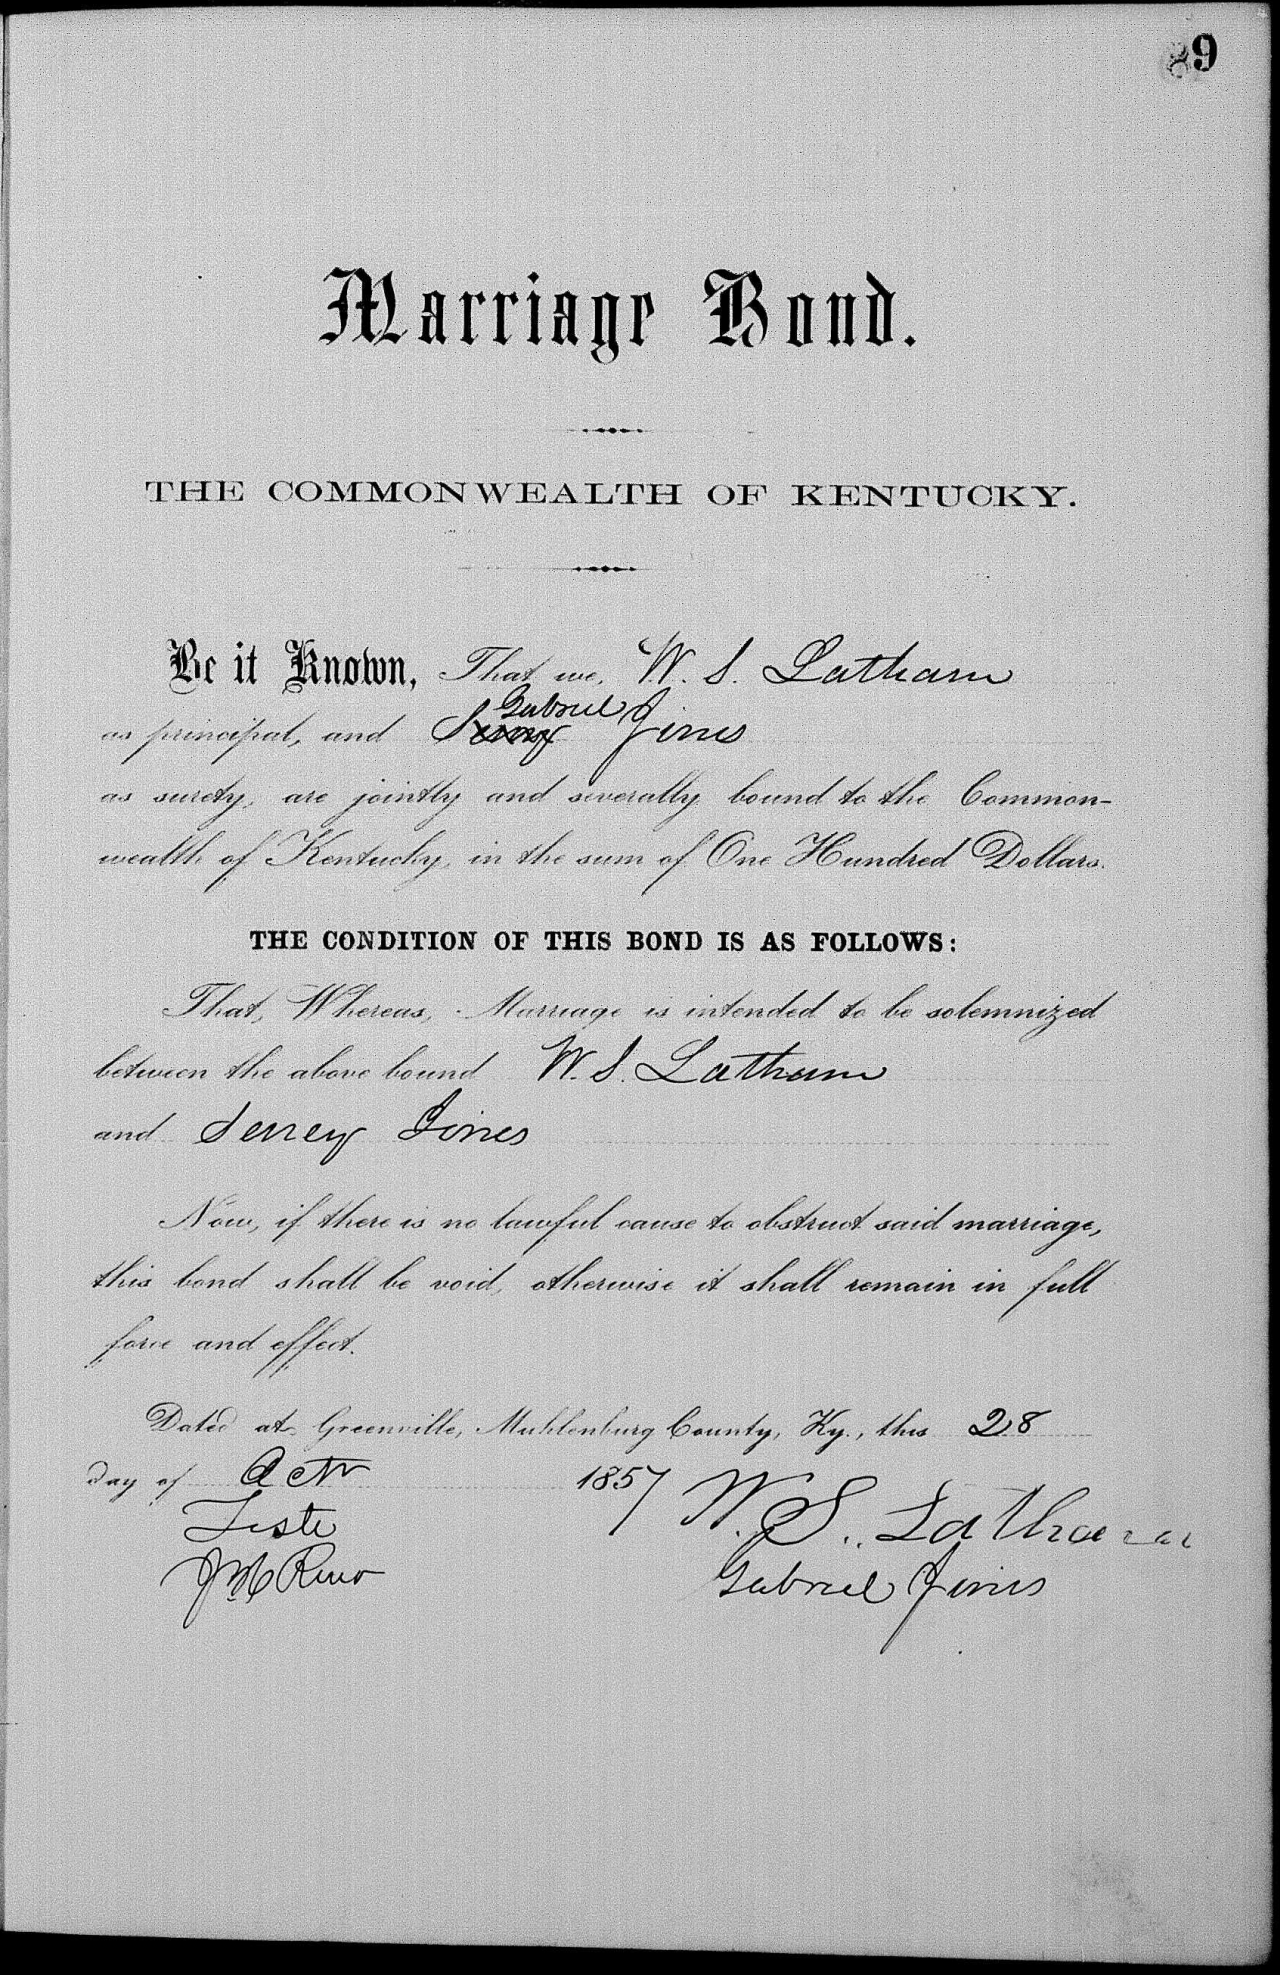 89
Marriage Bond.
THE COMMONWEALTH OF KENTUCKY.
Be it Known, That we, W. S. Latham
Gabriel
as principal, and Jones
as surety, are jointly and severally bound to the Common-
wealth of Kentucky, in the sum of One Hundred Dollars.
THE CONDITION OF THIS BOND IS AS FOLLOWS:
That, Whereas, Marriage is intended to be solemnized
between the above bound W. S. Latham
and Jones
Now, if there is no lawful cause to obstruct said marriage,
this bond shall be void, otherwise it shall remain in full
force and effect.
Dated at Greenville, Muhlenburg County, Ky., this 28
day of Octr 1857 W. S. Latham
Teste
Gabriel Jones